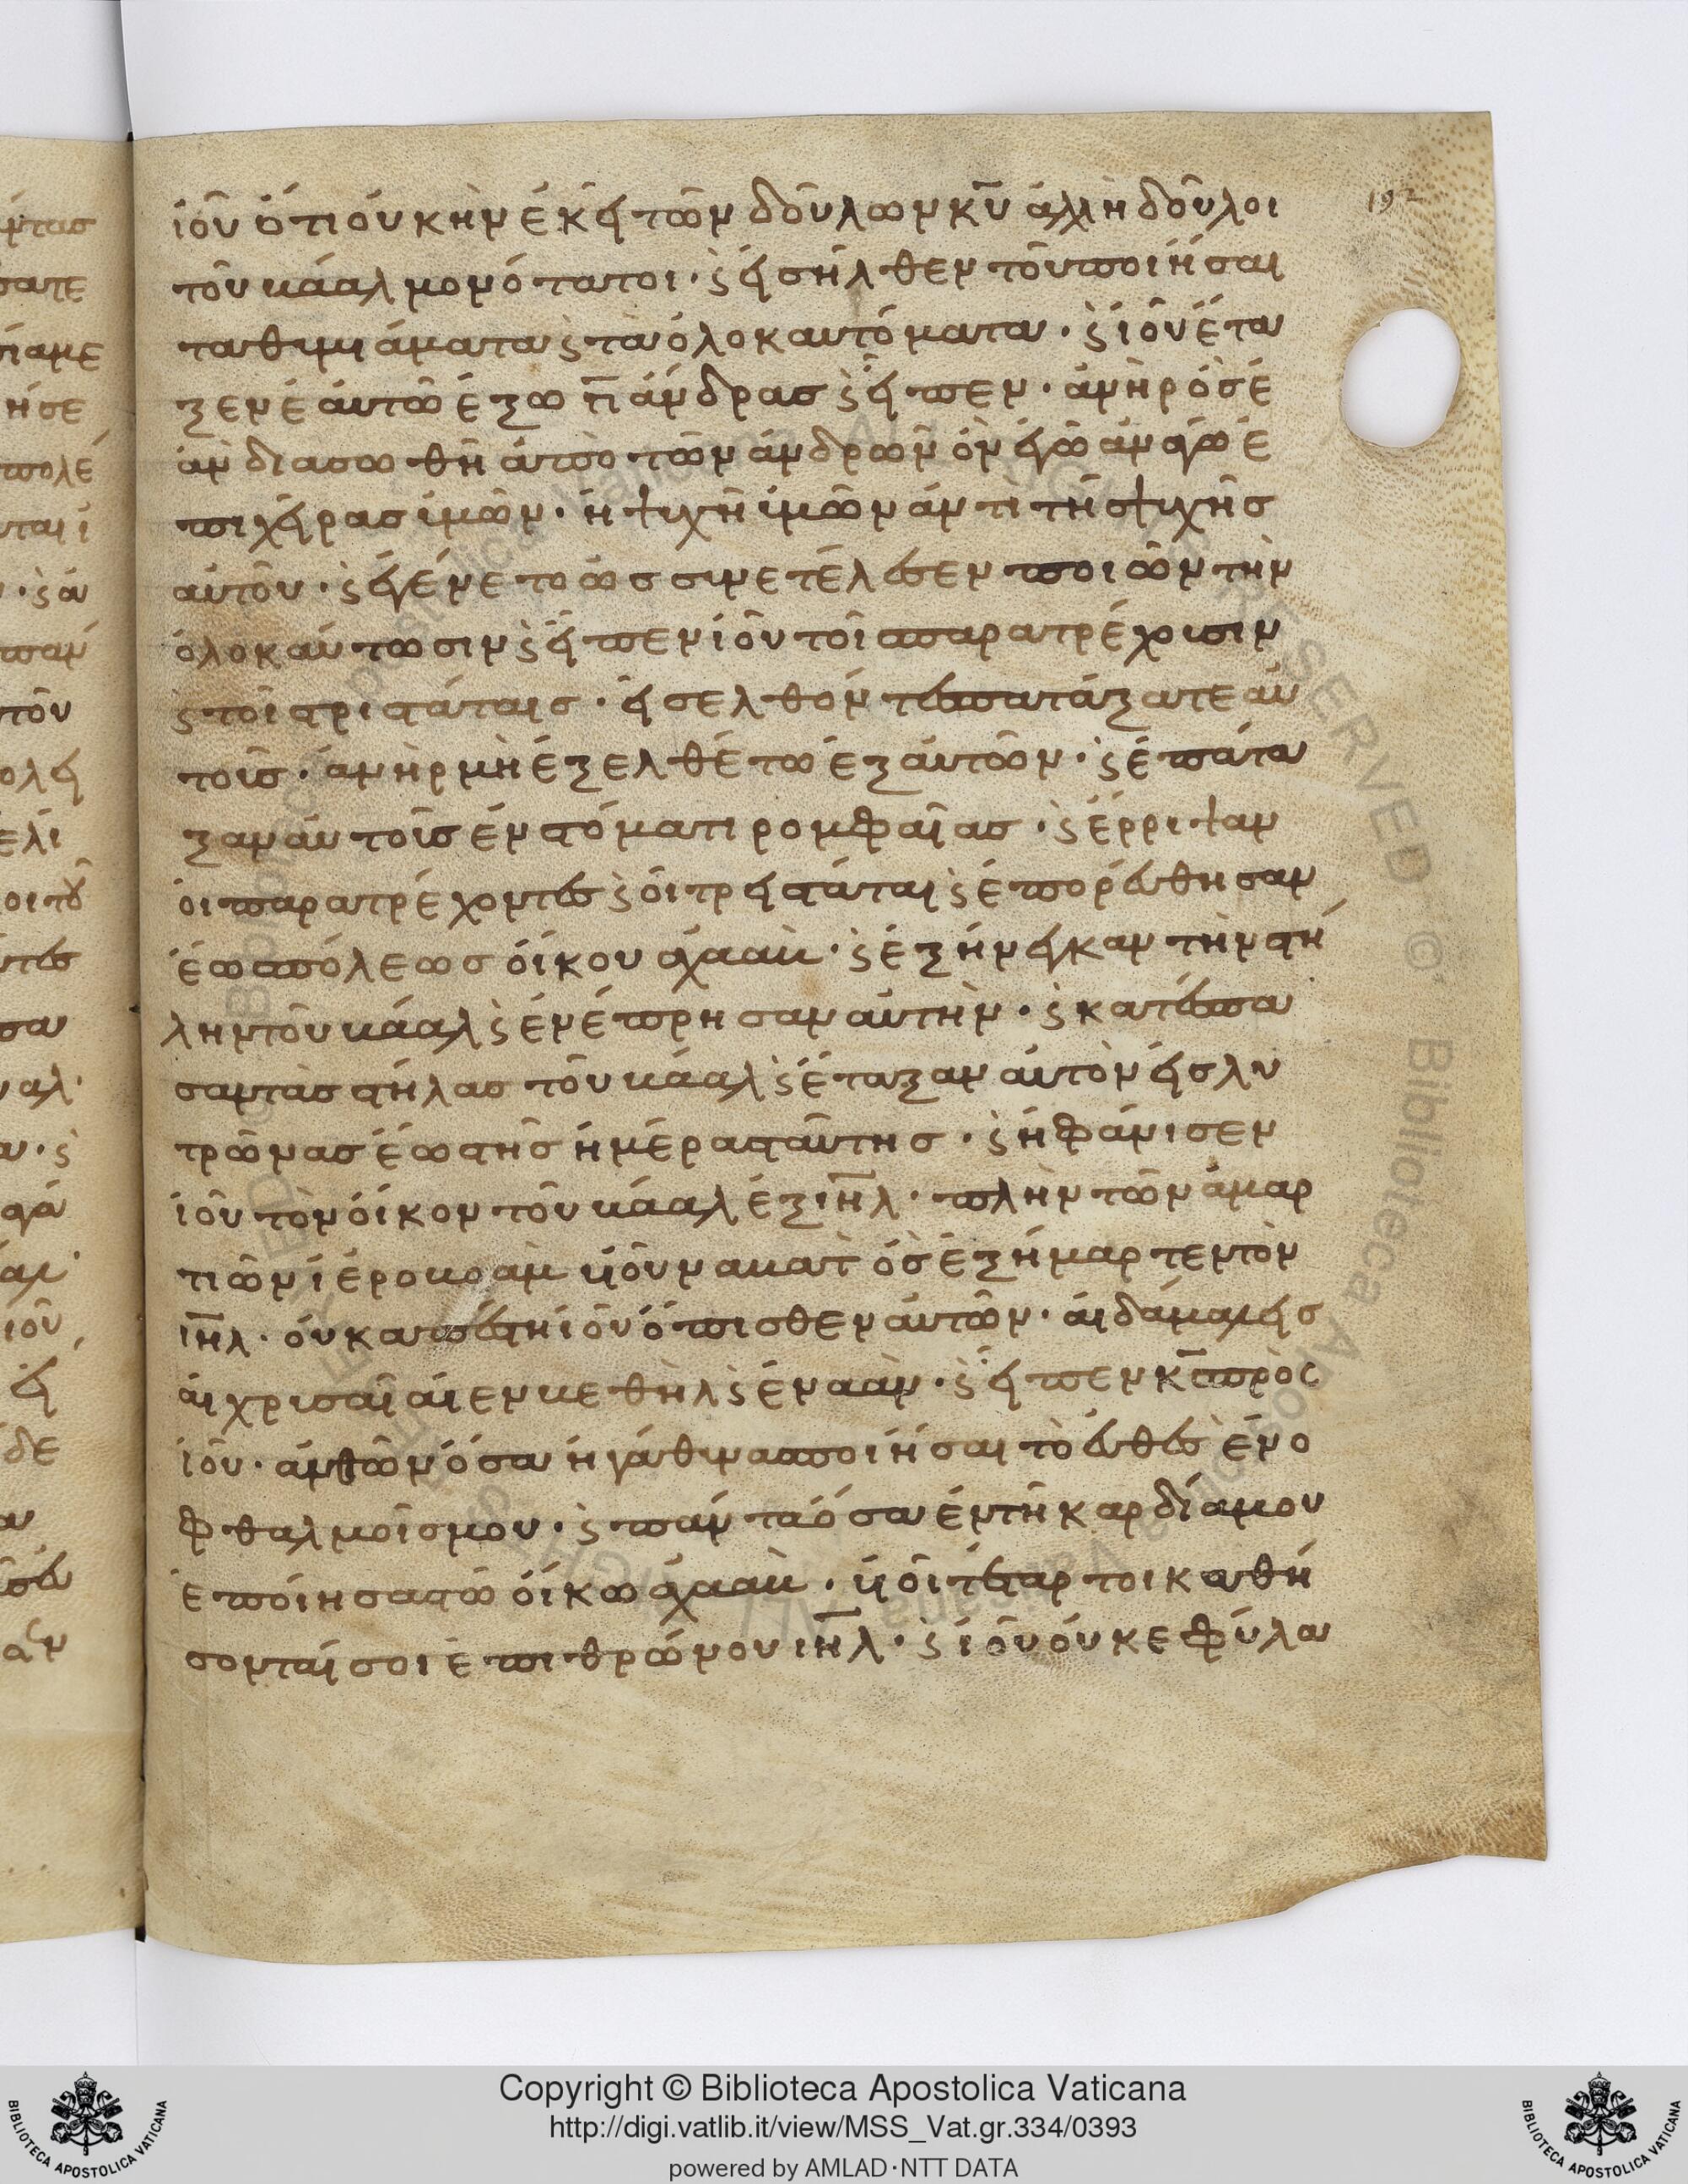 ἰοῦ ὅτι οὐκ ἢν ἐκεῖ τῶν δοῦλων κῦ ἀλλὴ δοῦλοι
τοῦ βάαλ μονότατοι· ϛ εἰσῆλθεν τοῦ ποιῆσαι
τα θυμιάματα ϛ τὰ ὁλοκαυτόματα· ϛ ἰοῦ ἔτα
ξεν ἑαυτῶ ἔξω π̅ ἄνδρας ϛ εἶπεν· ἀνὴρ ὃς ἐ
ὰν διασωθῆ ἀπὸ τῶν ἀνδρῶν ὃν εγῶ ἀναγάγω ἐ
πι χεῖρας ὑμῶν· ἡ ψυχῆ ὑμῶν ἀντὶ τῆς ψυχῆς
αὐτοῦ· ϛ ἐγένετο ὡς συνετέλεσεν ποιῶν τὴν
ὁλοκαύτωσιν ϛ εἶπεν ἰοῦ τοῖ παρατρέχουσιν
ϛ τοῖ τριστάταις· εἰσελθόντες πατάξατε αὐ
τοῖς· ἀνὴρ μὴ ἐξελθέτω ἐξ αὐτῶν· ϛ ἐπάτα
ξαν αὐτοῖς ἐν στόματι ρομφαῖας· ϛ ἔρριψαν
οἱ παρατρέχοντες ϛ ὁι τρειστάται ϛ ἐπορεύθησαν
ἕως πόλεως ὀίκου ἀχαάβ· ϛ ἐξήνεγκαν τὴν στή
λην τοῦ βάαλ ϛ ἐνέπρησαν αὐτὴν· ϛ κατέσπα
σαν τὰς στήλας τοῦ βάαλ ϛ ἔταξαν αὐτὸν εἰς λυ
τρῶνας ἕως τῆς ἡμέρας ταῦτης· ϛ ἠφάνισεν
ἰοῦ τὸν ὀίκον τοῦ βάαλ ἐξ ιη̅λ· πλὴν τῶν ἁμαρ
τιῶν ἱεροβοὰμ ὑιοῦ ναβατ ὃς ἐξήμαρτεν τὸν
ιη̅λ· οὐκ απέστη ἰοῦ ὄπισθεν αὐτῶν· ἁι δάμαλεις
ἁι χρυσαῖ ἁι εν βεθὴλ ϛ ἐν δὰν· ϛ εἶπεν κ̅ς πρὸς
ἰοῦ· ἀνθῶν ὅσα ἠγάθυνας ποιῆσαι τὸ εὐθὲς ἐν ο
φθαλμοῖς μου· ϛ πάντα ὅσα ἐν τῆ καρδία μου
ἐποίησας τῶ ὀίκω ἀχαάβ· ὑιοῖ τέταρτοι καθή
σονταί σοι ἐπι θρώνου ιη̅λ· ϛ ἰοῦ οὐκ εφύλα
192
Copyright © Biblioteca Apostolica Vaticana
http://digi.vatlib.it/view/MSS_Vat.gr.334/0393
powered by AMLAD·NTT DATA
BIBLIOTECA APOSTOLICA VATICANA
BIBLIOTECA APOSTOLICA VATICANA